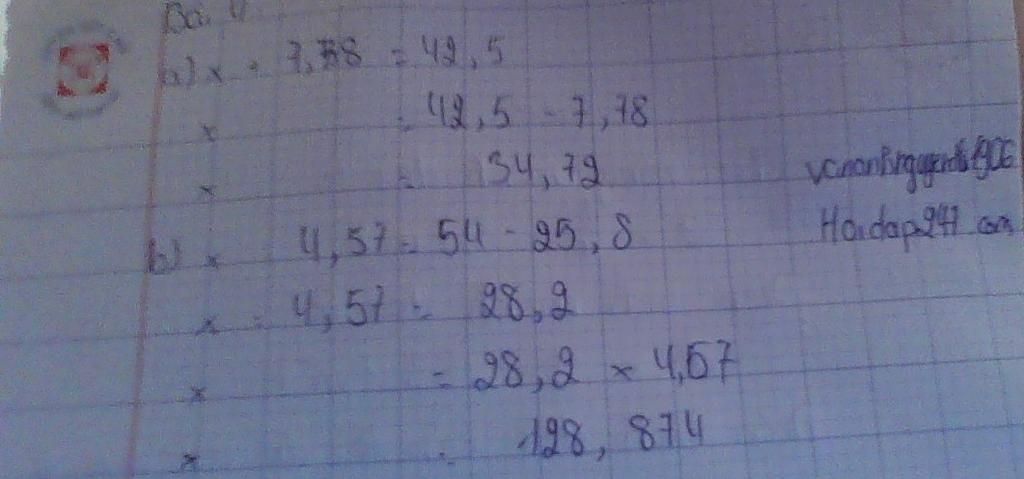 Bài 4
a) x + 7,78 = 42,5
x = 42,5 - 7,78
x = 34,72
b) x : 4,57 = 54 - 25,8
x : 4,57 = 28,2
x = 28,2 × 4,57
Hoidap247.com
x = 128,874